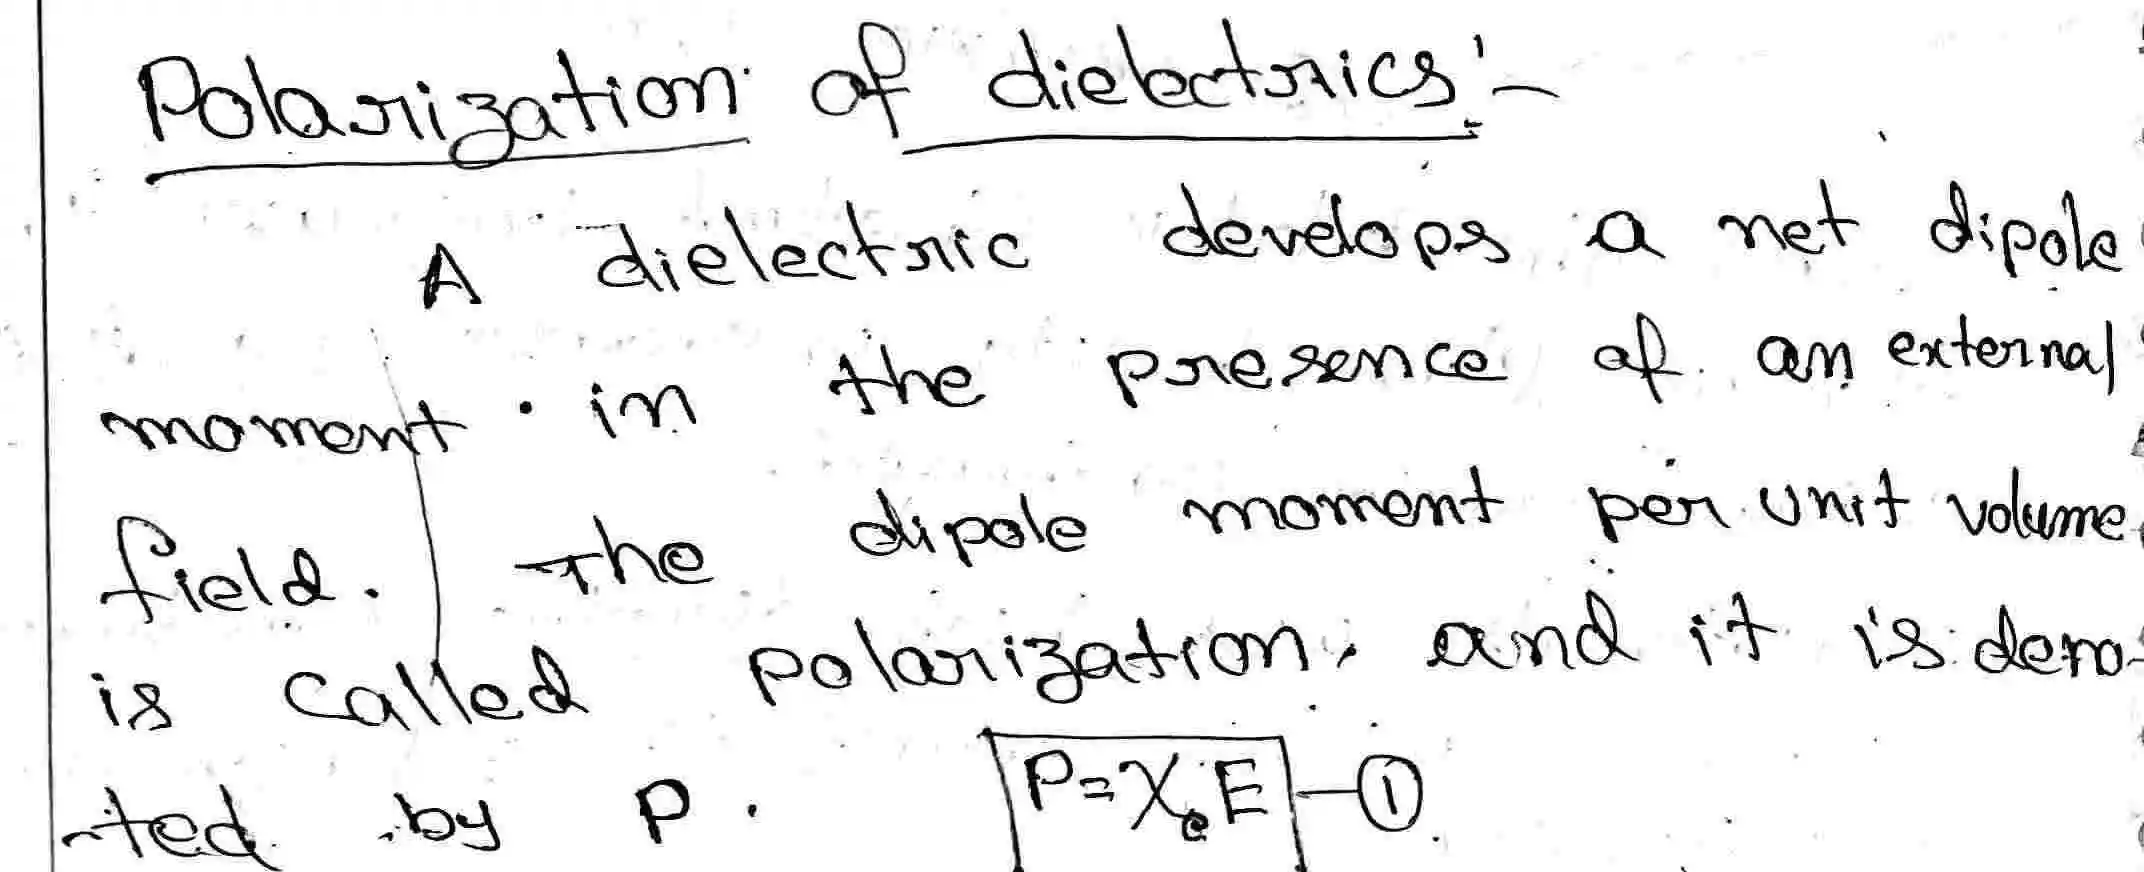 Polarization of dielectrics:-
A dielectric develops a net dipole
moment in the presence of an external
field. The dipole moment per unit volume
is called polarization, and it is deno-
-ted by P. P=χₑE —①